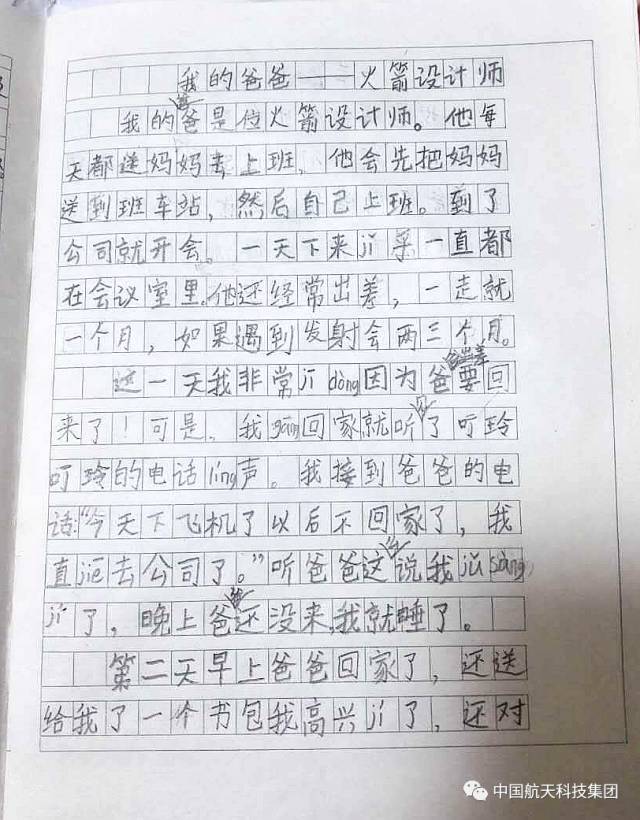 我的爸爸——火箭设计师
我的爸爸是位火箭设计师。他每
天都送妈妈去上班，他会先把妈妈
送到班车站，然后自己上班。到了
公司就开会。一天下来jī 乎一直都
在会议室里。他还经常出差，一走就
一个月，如果遇到发射会两三个月。
这一天我非常jī dòng因为爸爸出差要回
来了！可是，我gāng回家就听见了叮玲
叮玲的电话líng声。我接到爸爸的电
话:“今天下飞机了以后不回家了，我
直jiē去公司了。”听爸爸这么说我jǔ sàng
jí了，晚上爸爸还没来，我就睡了。
第二天早上爸爸回家了，还送
给我了一个书包我高兴jí了，还对
中国航天科技集团